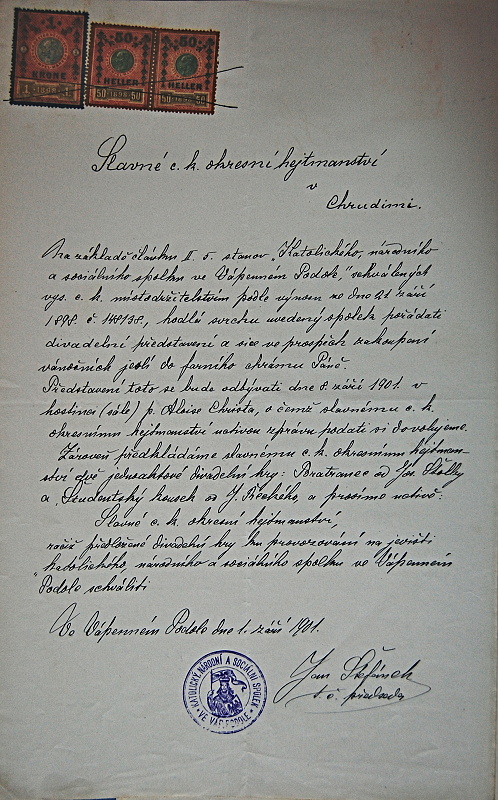 1
KRONE
1 1898 1
50
HELLER
50 1898 50
50
HELLER
50 1898 50
Slavné c. k. okresní hejtmanství
v
Chrudimi.
Na základě článku II. 5. stanov „Katolického, národního
a sociálního spolku ve Vápenném Podole," schválených
vys. c. k. místodržitelstvím podle výnosu ze dne 21 září
1898 č. 148138., hodlá svrchu uvedený spolek pořádati
divadelní představení a sice ve prospěch zakoupení
vánočních jeslí do farního chrámu Páně.
Představení toto se bude odbývati dne 8. září 1901. v
hostinci (sále) p. Aloise Christa, o čemž slavnému c. k.
okresnímu hejtmanství uctivou zprávu podati si dovolujeme.
Zároveň předkládáme slavnému c. k. okresnímu hejtman-
ství dvě jednoaktové divadelní hry: Bratranec od Jos. Štolby
a „Studentský kousek od J. , a prosíme uctivě:
Slavné c. k. okresní hejtmanství,
račiž předložené divadelní hry ku provozování na jevišti
„katolického, národního a sociálního spolku ve Vápenném
Podole schváliti
Ve Vápenném Podole dne 1. září 1901.
KATOLICKÝ NÁRODNÍ A SOCIÁLNÍ SPOLEK
VE VÁP. PODOLE
Jan Štěpánek
t. č. předseda